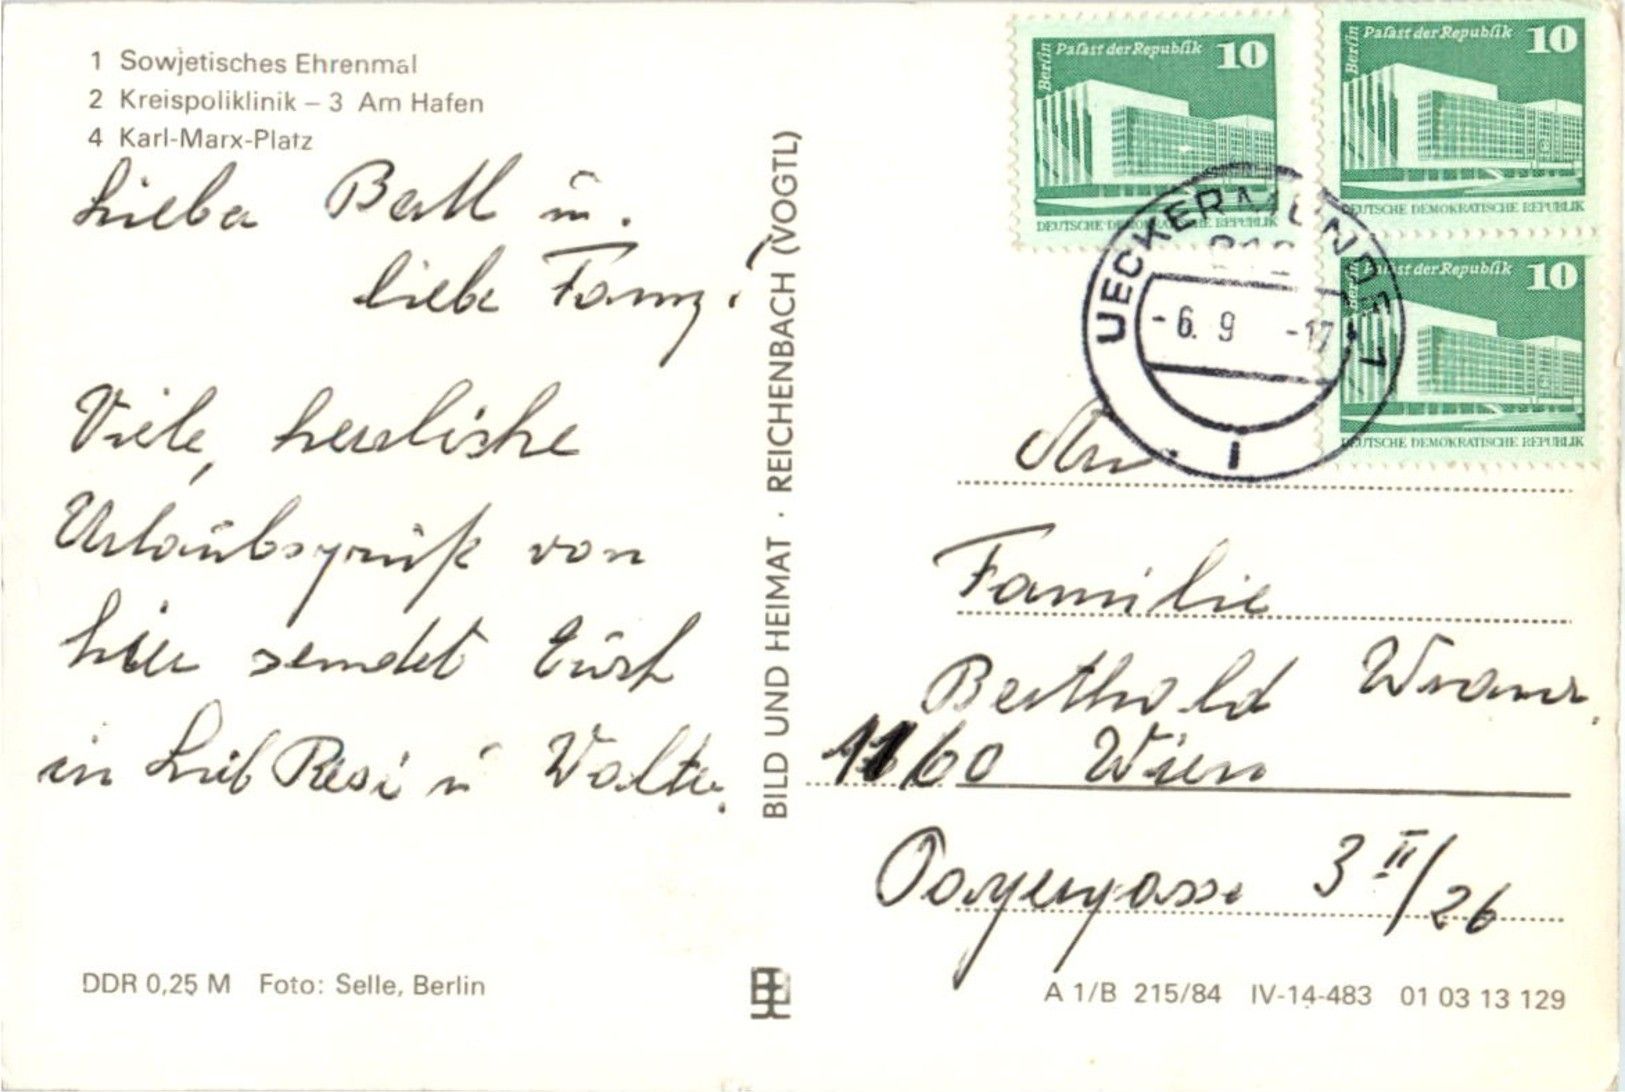 1 Sowjetisches Ehrenmal
2 Kreispoliklinik – 3 Am Hafen
4 Karl-Marx-Platz
Lieber Bertl u.
liebe Fanny!
Viele, herzliche
Urlaubsgrüße von
hier sendet Euch
in Lieb Resi u Walter.
BILD UND HEIMAT · REICHENBACH (VOGTL)
Berlin Palast der Republik 10
DEUTSCHE DEMOKRATISCHE REPUBLIK
Berlin Palast der Republik 10
DEUTSCHE DEMOKRATISCHE REPUBLIK
Berlin Palast der Republik 10
DEUTSCHE DEMOKRATISCHE REPUBLIK
UECKERMÜNDE 1
-6. 9 -17
An
Familie
Berthold
1160 Wien
3 II/26
DDR 0,25 M Foto: Selle, Berlin
A 1/B 215/84 IV-14-483 01 03 13 129